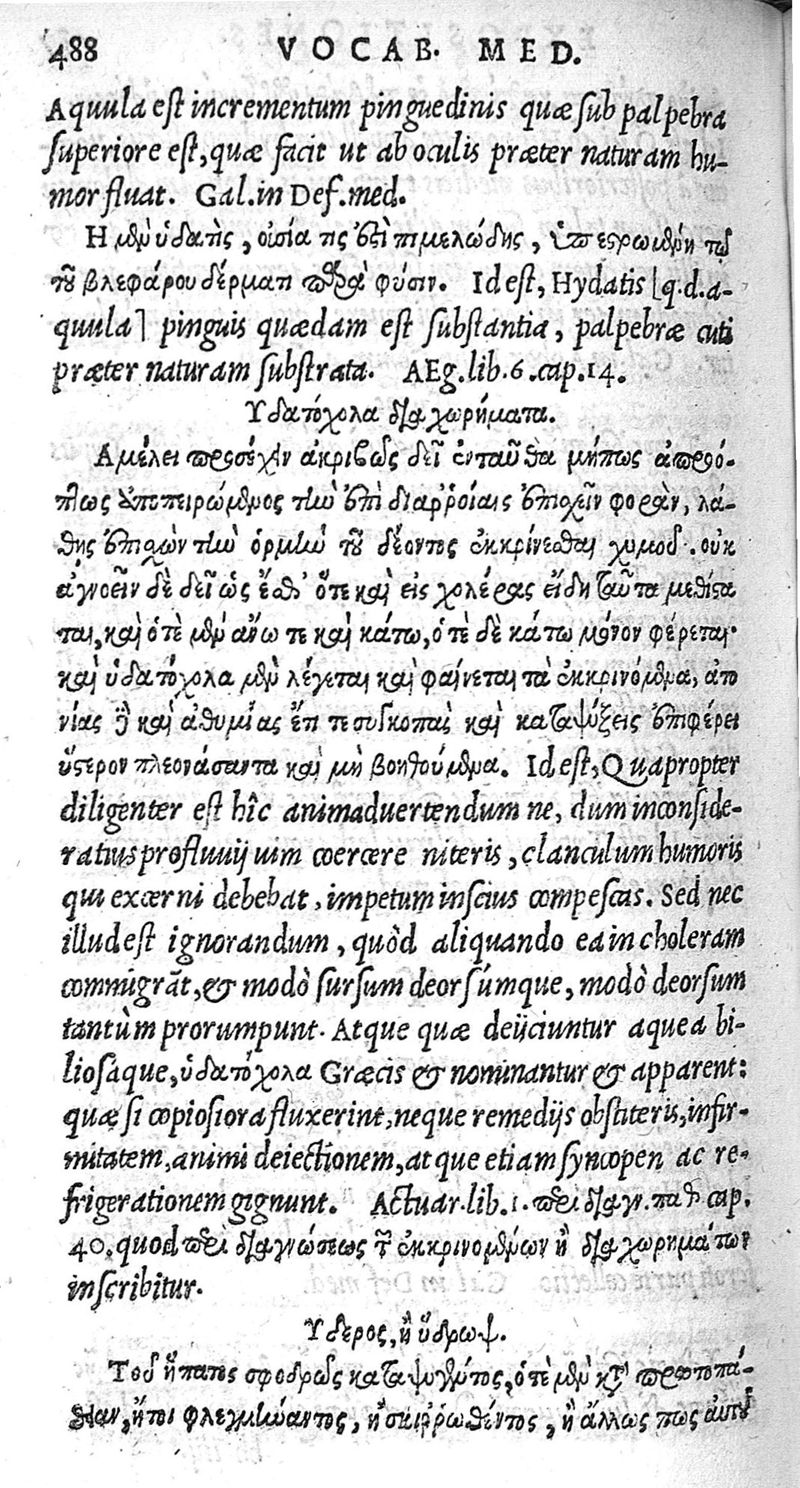 488 VOCAB. MED.
Aquula est incrementum pinguedinis quæ sub palpebra
superiore est, quæ facit ut ab oculis præter naturam hu-
mor fluat. Gal. in Def. med.
Η μὲν ὑδατὶς, οὐσία τις ἐστὶ πιμελώδης, ὑπεστρωμένη τῷ
τοῦ βλεφάρου δέρματι παρὰ φύσιν. Id est, Hydatis [q. d. a-
quula] pinguis quædam est substantia, palpebræ cuti
præter naturam substrata. AEg. lib. 6. cap. 14.
Υδατόχολα διαχωρήματα.
Αμέλει προσέχειν ἀκριβῶς δεῖ ἐνταῦθα μήπως ἀπροό-
πτως πειρώμενος τὴν ἐπὶ διαῤῥοίαις ἐπισχεῖν φορὰν, λά-
θῃς ἐπισχὼν τὴν ὁρμὴν τοῦ δέοντος ἐκκρίνεσθαι χυμοῦ. οὐκ
ἀγνοεῖν δὲ δεῖ ὡς ἔσθ' ὅτε καὶ εἰς χολέρας εἴδη ταῦτα μεθίστα
ται, καὶ ὁτὲ μὲν ἄνω τε καὶ κάτω, ὁτὲ δὲ κάτω μόνον φέρεται.
καὶ ὑδατόχολα μὲν λέγεται καὶ φαίνεται τὰ ἐκκρινόμενα, ἀτο
νίας δὲ καὶ ἀθυμίας ἔτι τε συγκοπὰς καὶ καταψύξεις ἐπιφέρει
ὕστερον πλεονάσαντα καὶ μὴ βοηθούμενα. Id est, Quapropter
diligenter est hîc animaduertendum ne, dum inconside-
ratius profluuij uim coercere niteris, clanculum humoris
qui excerni debebat, impetum inscius compescas. Sed nec
illud est ignorandum, quòd aliquando ea in choleram
commigrãt, & modò sursum deorsúmque, modò deorsum
tantùm prorumpunt. Atque quæ deijciuntur aquea bi-
liosáque, ὑδατόχολα Græcis & nominantur & apparent:
quæ si copiosiora fluxerint, neque remedijs obstiteris, infir-
mitatem, animi deiectionem, atque etiam syncopen ac re-
frigerationem gignunt. Actuar. lib. 1. περὶ διαγν. παθ cap.
40. quod περὶ διαγνώσεως τ̃ ἐκκρινομένων ἢ διαχωρημάτων
inscribitur.
Υδερος, ἢ ὕδρωψ.
Τοῦ ἥπατος σφοδρῶς καταψυχθέντος, ὁτὲ μὲν κατ' πρωτοπά-
θειαν, ἤτοι φλεγμήναντος, ἢ σκιῤῥωθέντος, ἢ ἄλλως πως αὐτοῦ